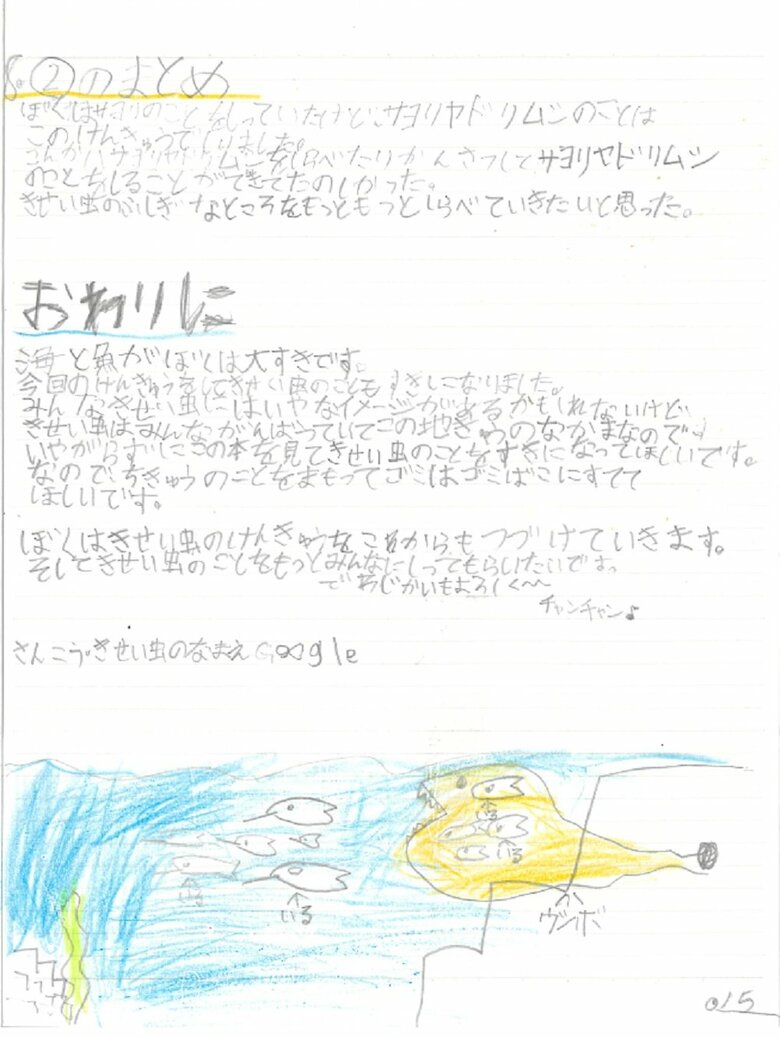 ②のまとめ
ぼくはサヨリのことをしっていたけど、サヨリヤドリムシのことは
このけんきゅうでしりました。
こんかいサヨリヤドリムシをしらべたりかんさつしてサヨリヤドリムシ
のことをしることができてたのしかった。
きせい虫のふしぎなところをもっともっとしらべていきたいと思った。
おわりに
海と魚がぼくは大すきです。
今回のけんきゅうをしてきせい虫のこともすきになりました。
みんなきせい虫にはいやなイメージがあるかもしれないけど
きせい虫はみんながんばっていてこの地きゅうのなかまなので
いやがらずにこの本を見てきせい虫のことをすきになってほしいです。
なので、ちきゅうのことをまもってゴミはゴミばこにすてて
ほしいです。
ぼくはきせい虫のけんきゅうをこれからもつづけていきます。
そしてきせい虫のことをもっとみんなにしってもらいたいです
でわじかいもよろしく〜〜
チャンチャン♪
さんこう・きせい虫のなまえGoogle
いる
いる
いる
いる
015